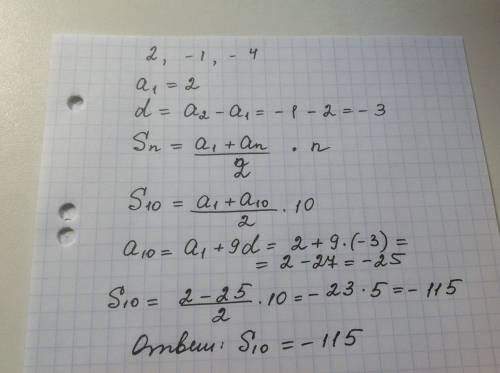 2, -1, -4
a₁ = 2
d = a₂ - a₁ = -1 - 2 = -3
Sₙ = (a₁ + aₙ)/2 · n
S₁₀ = (a₁ + a₁₀)/2 · 10
a₁₀ = a₁ + 9d = 2 + 9·(-3) =
= 2 - 27 = -25
S₁₀ = (2 - 25)/2 · 10 = -23·5 = -115
Ответ: S₁₀ = -115